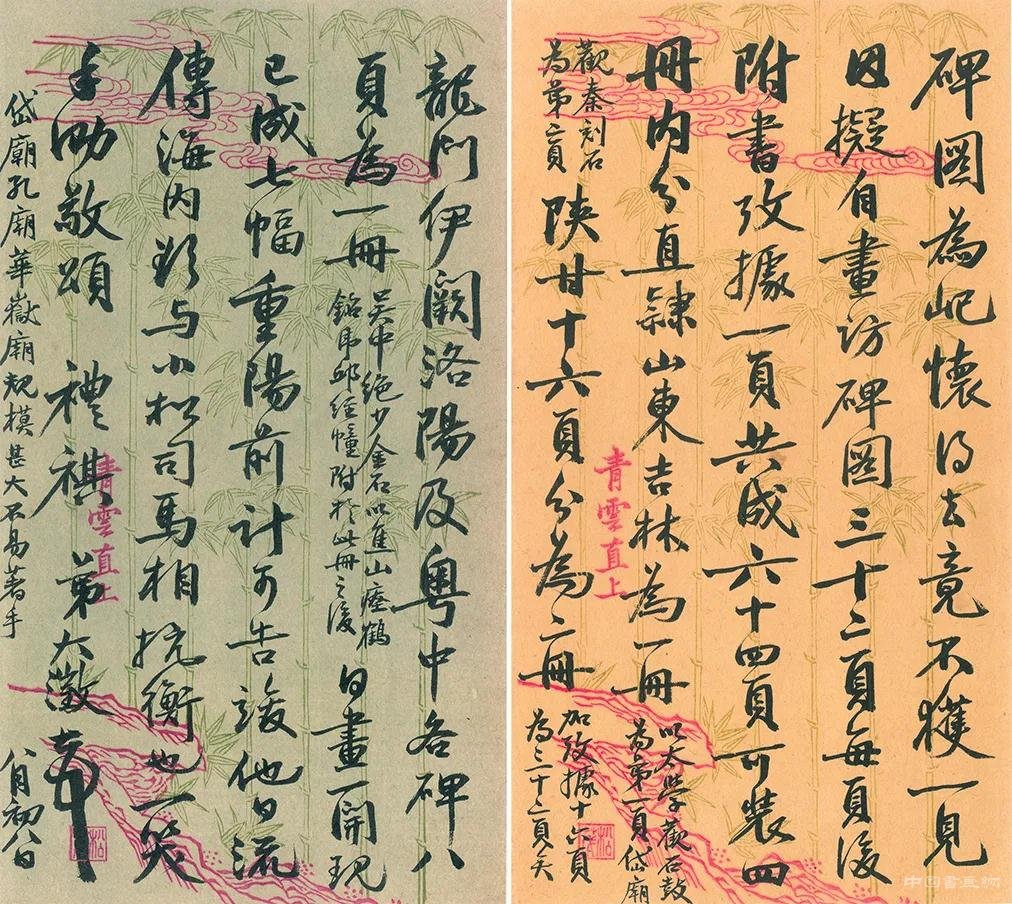 碑圖為屺懷得去竟不獲一見
因擬自畫訪碑圖三十二頁每頁後
附書攷據一頁共成六十四頁可裝四
冊內分直隸山東吉林為一冊
以太學觀石鼓
為第一頁岱廟
觀秦刻石
為第二頁
陝甘十六頁分為二冊
加攷據十六頁
為三十二頁矣
青雲直上
龍門伊闕洛陽及粵中各碑八
頁為一冊
吳中絕少金石以焦山瘞鶴
銘虎邱經幢附於此冊之後
日畫一開現
已成七幅重陽前計可告竣他日流
傳海內欲与小松司馬相抗衡也一笑
手泐敬頌 禮祺 弟大澂頓首
青雲直上
岱廟孔廟華嶽廟規模甚大不易著手 八月初八日